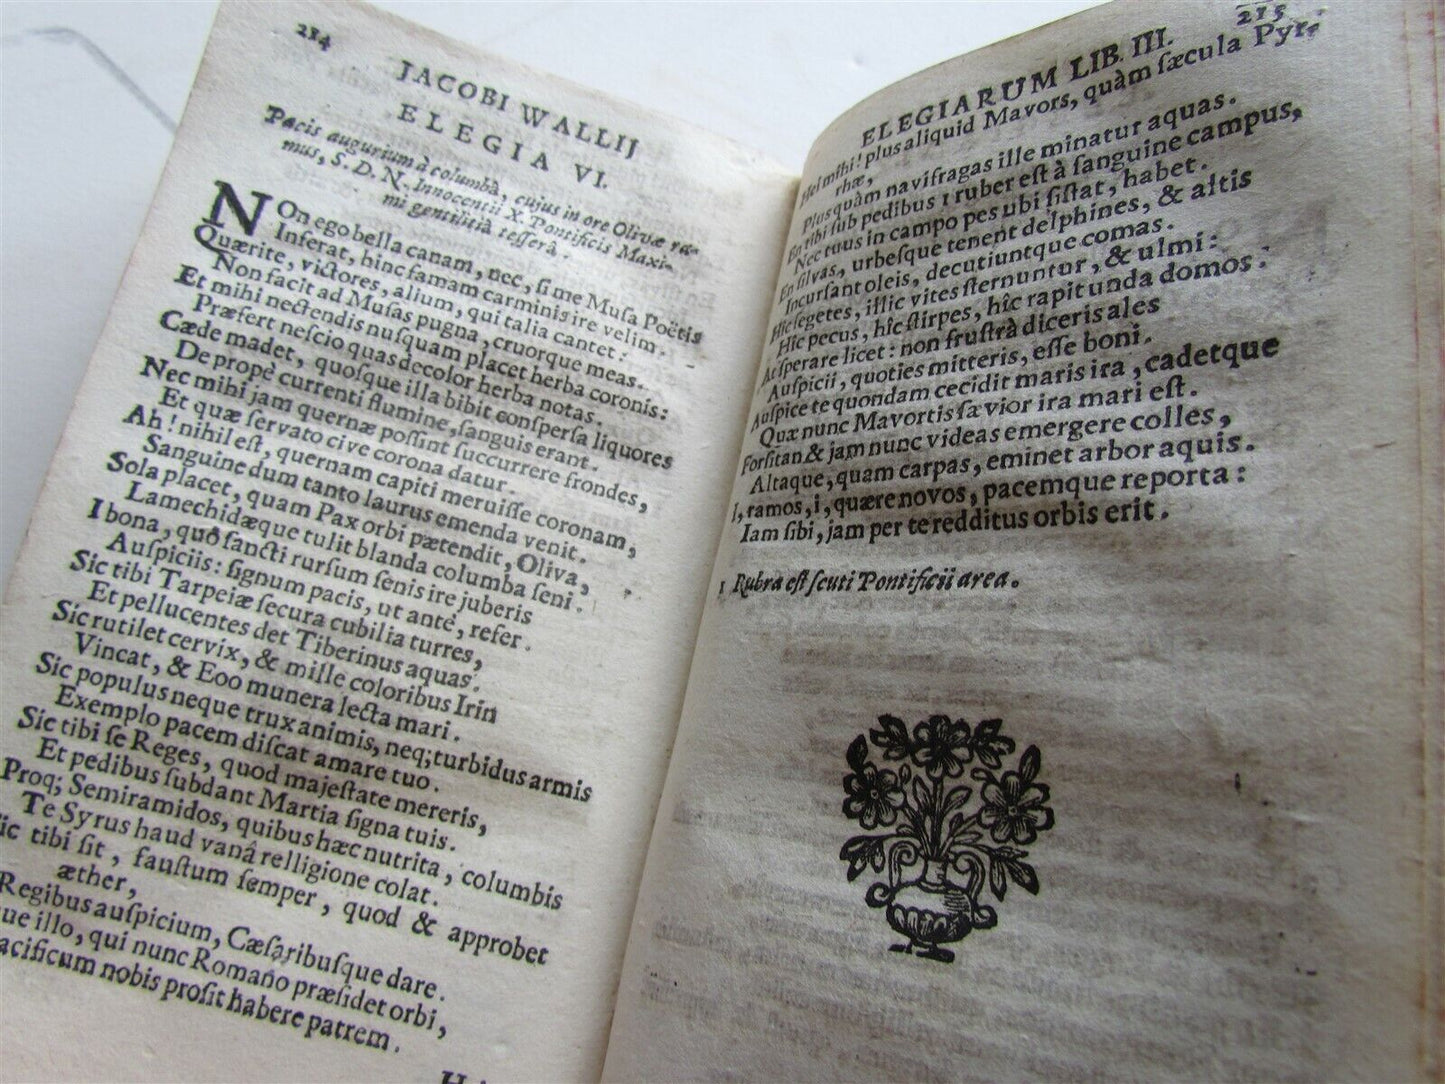 214
JACOBI WALLIJ
ELEGIA VI.
Pacis augurium à columbâ, cujus in ore Olivæ ra-
mus, S. D. N. Innocentii X. Pontificis Maxi-
mi gentilitiâ tesserâ.
NOn ego bella canam, nec, si me Musa Poëtis
Inserat, hinc famam carminis ire velim.
Quærite, victores, alium, qui talia cantet:
Non facit ad Musas pugna, cruorque meas.
Et mihi nectendis nusquam placet herba coronis:
Præfert nescio quas decolor herba notas.
Cæde madet, quosque illa bibit conspersa liquores
De propè currenti flumine, sanguis erant.
Nec mihi jam quernæ possint succurrere frondes,
Et quæ servato cive corona datur.
Ah! nihil est, quernam capiti meruisse coronam,
Sanguine dum tanto laurus emenda venit.
Sola placet, quam Pax orbi prætendit, Oliva,
Lamechidæque tulit blanda columba seni.
I bona, quò sancti rursum senis ire juberis
Auspiciis: signum pacis, ut antè, refer.
Sic tibi Tarpeiæ secura cubilia turres,
Et pellucentes det Tiberinus aquas.
Sic rutilet cervix, & mille coloribus Irin
Vincat, & Eoo munera lecta mari.
Sic populus neque trux animis, neq; turbidus armis
Exemplo pacem discat amare tuo.
Sic tibi se Reges, quod majestate mereris,
Et pedibus subdant Martia signa tuis.
Proq; Semiramidos, quibus hæc nutrita, columbis
Te Syrus haud vanâ relligione colat.
ic tibi sit, faustum semper, quod & approbet
æther,
Regibus auspicium, Cæsaribusque dare.
ue illo, qui nunc Romano præsidet orbi,
acificum nobis prosit habere patrem.
215
ELEGIARUM LIB. III.
Hei mihi! plus aliquid Mavors, quàm sæcula Pyr-
rhæ,
Plus quàm navifragas ille minatur aquas.
En tibi sub pedibus 1 ruber est à sanguine campus,
Nec tuus in campo pes ubi sistat, habet.
En silvas, urbesque tenent delphines, & altis
Incursant oleis, decutiuntque comas.
Hîc segetes, illic vites sternuntur, & ulmi:
Hîc pecus, hîc stirpes, hîc rapit unda domos.
Asperare licet: non frustrà diceris ales
Auspicii, quoties mitteris, esse boni.
Auspice te quondam cecidit maris ira, cadetque
Quæ nunc Mavortis sævior ira mari est.
Forsitan & jam nunc videas emergere colles,
Altaque, quam carpas, eminet arbor aquis.
I, ramos, i, quære novos, pacemque reporta:
Iam sibi, jam per te redditus orbis erit.
1 Rubra est scuti Pontificii area.